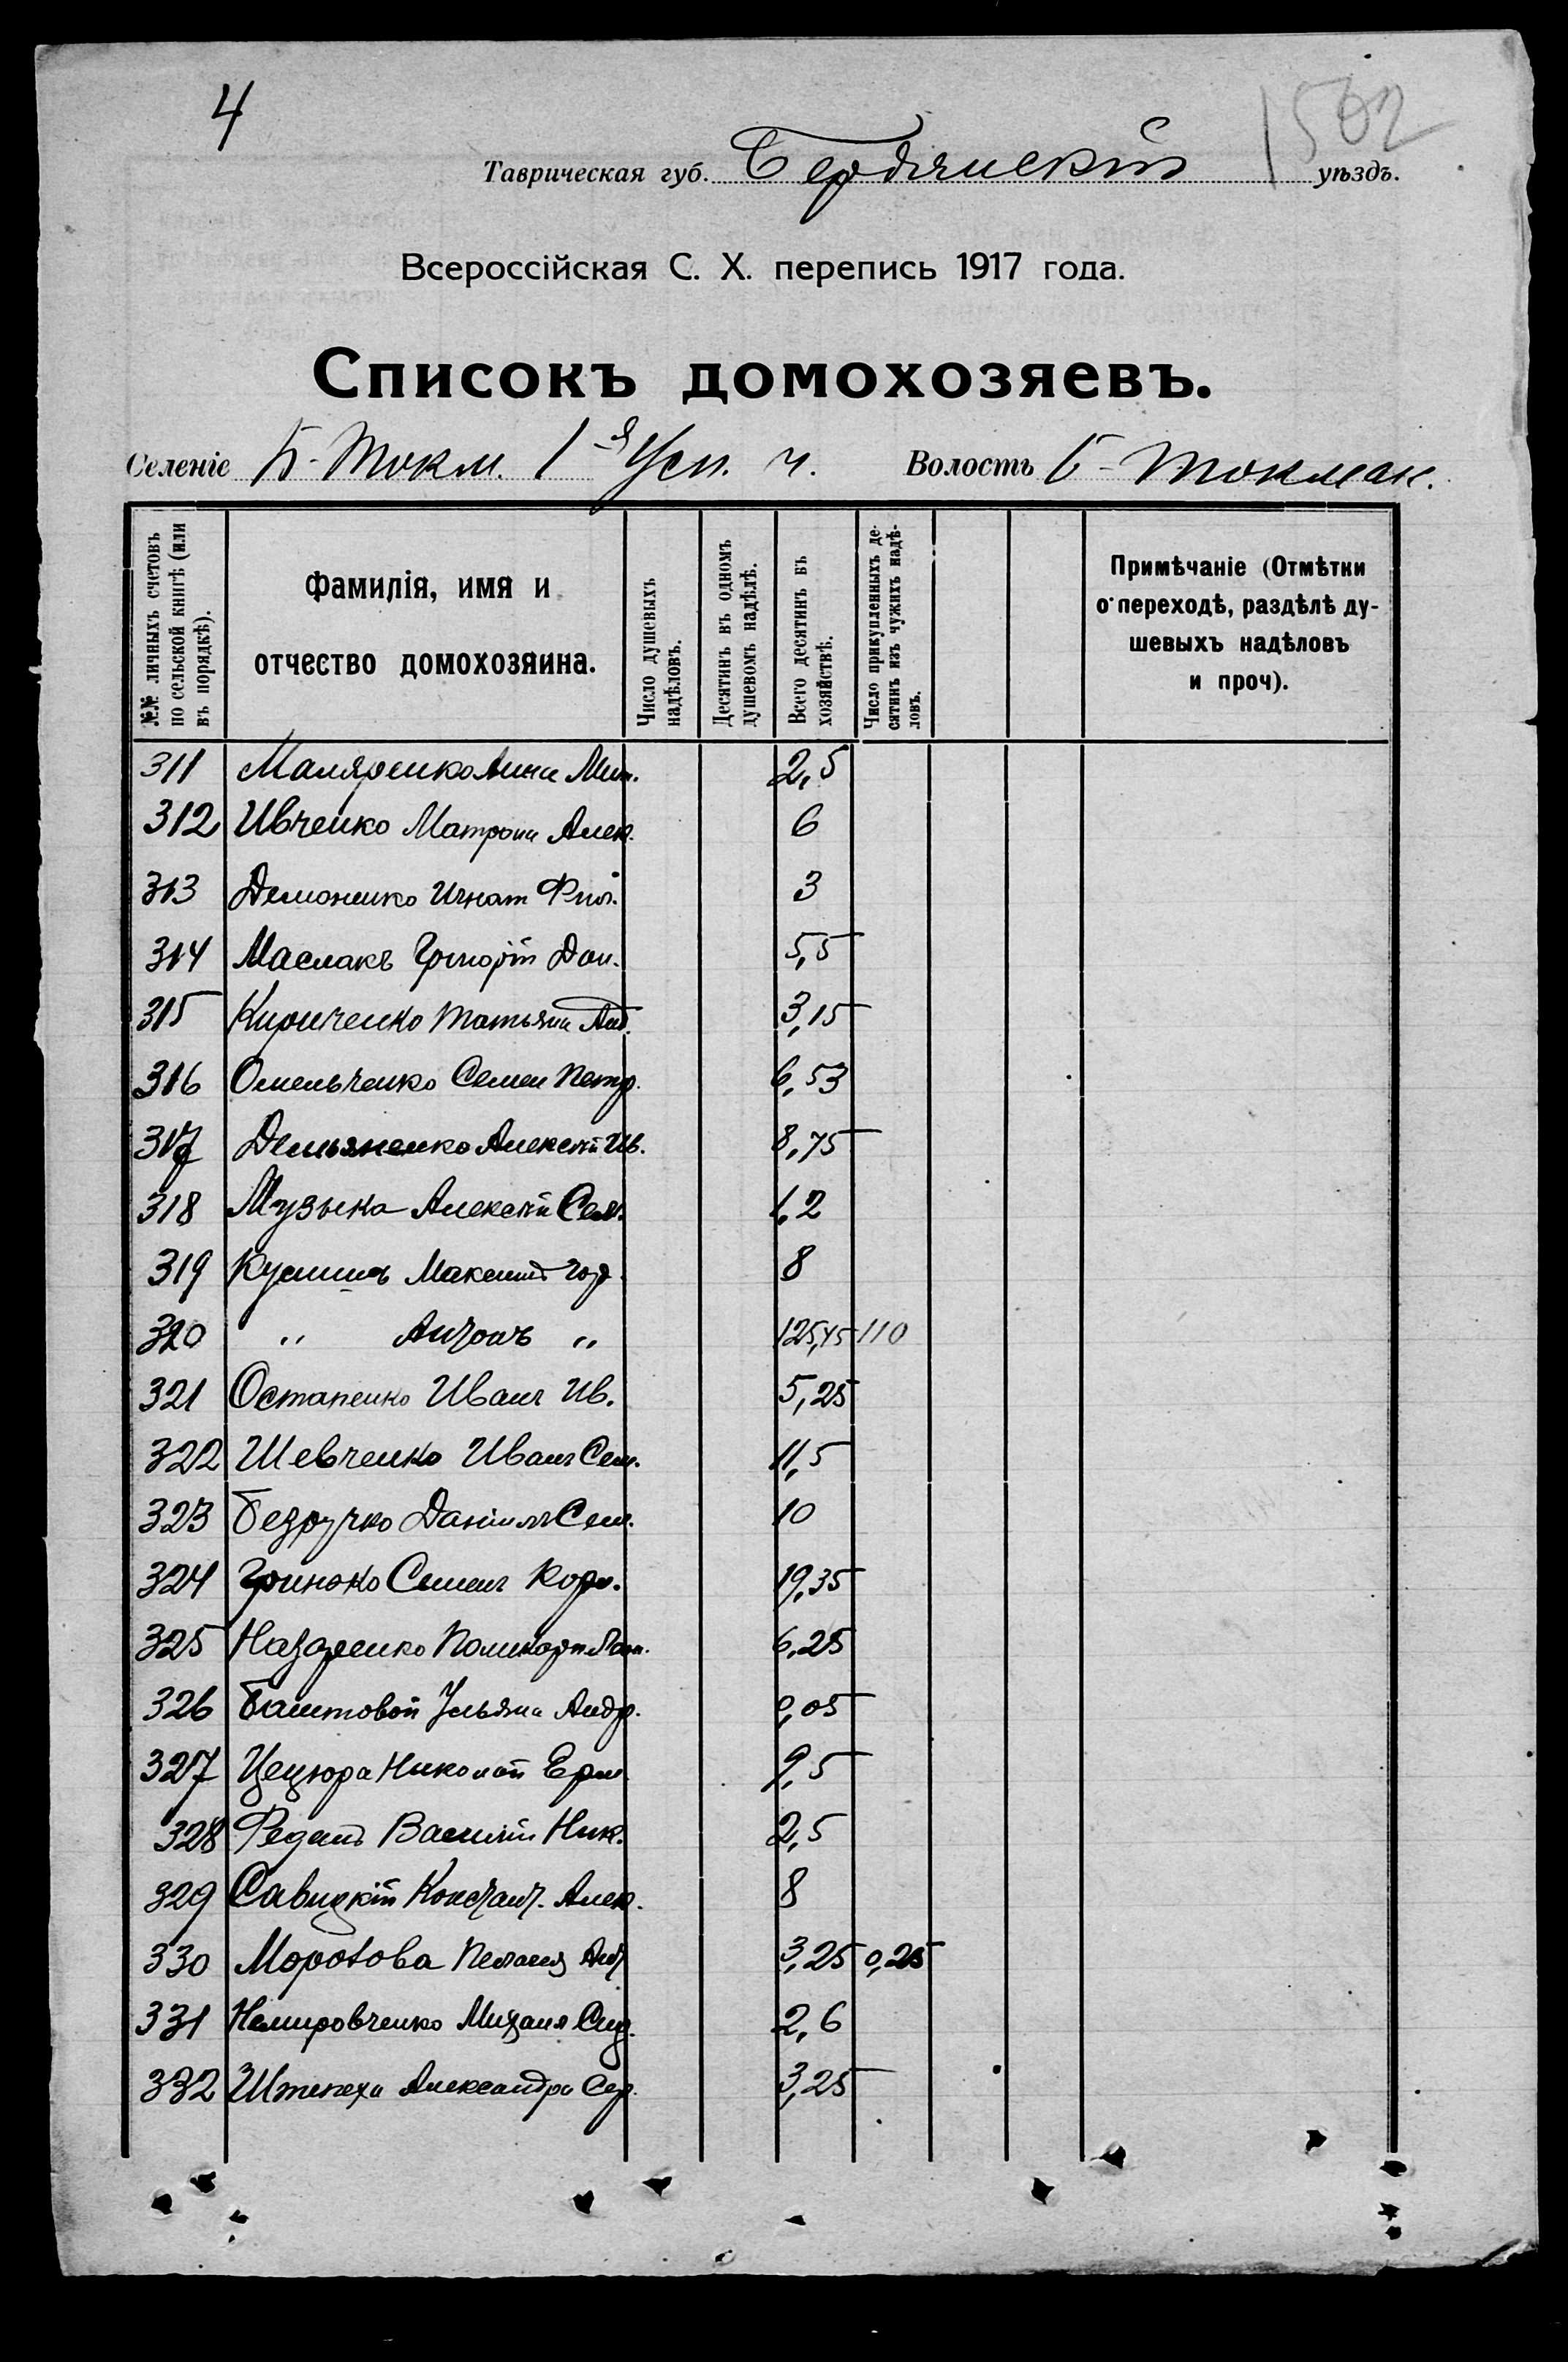 4
1502
Таврическая губ. Бердянскій уѣздъ.
Всероссійская С. Х. перепись 1917 года.
Списокъ домохозяевъ.
Селеніе Б-Токм. 1я Усп. ч. Волость Б-Токмак.
№№ личныхъ счетовъ по сельской книгѣ (или въ порядкѣ).
Фамилія, имя и отчество домохозяина.
Число душевыхъ надѣловъ.
Десятинъ въ одномъ душевомъ надѣлѣ.
Всего десятинъ въ хозяйствѣ.
Число прикупленныхъ десятинъ изъ чужихъ надѣловъ.
Примѣчаніе (Отмѣтки о переходѣ, раздѣлѣ душевыхъ надѣловъ и проч).
311 Маляренко Анна Мих. 2,5
312 Ивченко Матрона Алек. 6
313 Демоненко Игнат Фил. 3
314 Маслакъ Григорій Дан. 5,5
315 Кириченко Татьяна Анд. 3,15
316 Омельченко Семен Петр. 6,53
317 Демьяненко Алексѣй Ив. 8,75
318 Музыка Алексѣй Сем. 1,2
319 Максимъ 8
320 " Антонъ " 125,45 110
321 Остапенко Иванъ Ив. 5,25
322 Шевченко Иванъ Сем. 11,5
323 Безручко Даніилъ Сем. 10
324 Гринько Семенъ Корн. 19,35
325 Назаренко Поликарп 6,25
326 Баштовой Ульяна Андр. 0,05
327 Цецюра Николай Ерм. 9,5
328 Василій Ник. 2,5
329 Савицкій Констант. Алек. 8
330 Морозова Пелагея 3,25 0,25
331 Немировченко Михаил Сид. 2,6
332 Штепеха Александра Сер. 3,25